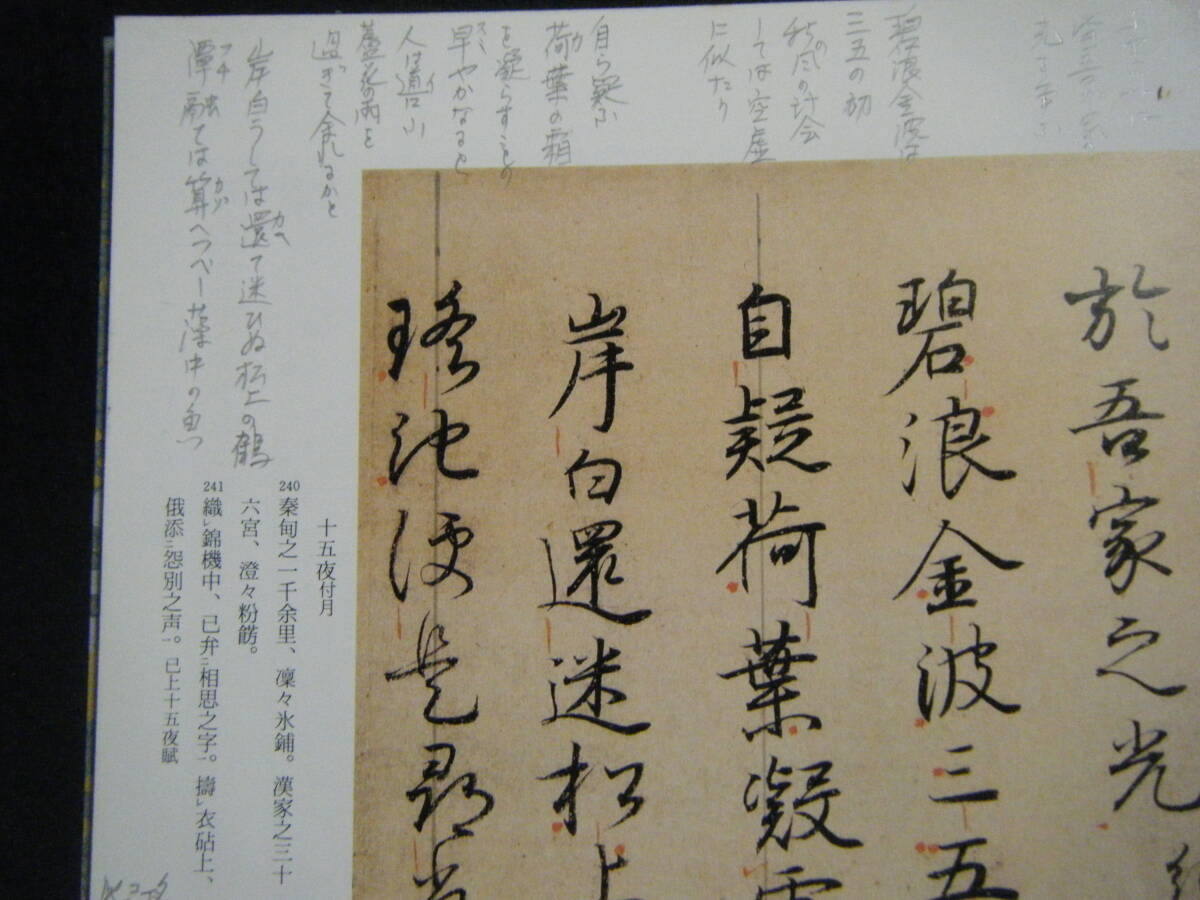 碧浪金波は
三五の初
秋風の計会
しては空虚
に似たり
自ら疑ふ
荷葉の霜
を凝らすことの
早やかなるを
人は道ふ
蘆花の雨を
過ぎて余れるかと
岸白うしては還て迷ひぬ松上の鶴
潭融ては算へつべし藻中の魚
於吾家之光
碧浪金波三五
自疑荷葉凝
岸白還迷松上
瑤池便是尋
十五夜付月
240 秦甸之一千余里、凜々氷鋪。漢家之三十
六宮、澄々粉餝。
241 織レ錦機中、已弁二相思之字一。擣レ衣砧上、
俄添二怨別之声一。已上十五夜賦